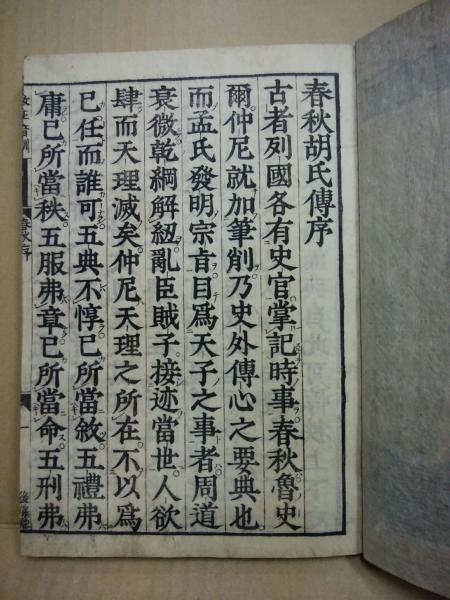 春秋胡氏傳序
古者列國各有史官掌記時事春秋魯史
爾仲尼就加筆削乃史外傳心之要典也
而孟氏發明宗旨目爲天子之事者周道
衰微乾綱解紐亂臣賊子接迹當世人欲
肆而天理滅矣仲尼天理之所在不以爲
已任而誰可五典不惇已所當敘五禮弗
庸已所當秩五服弗章已所當命五刑弗
春秋序
一